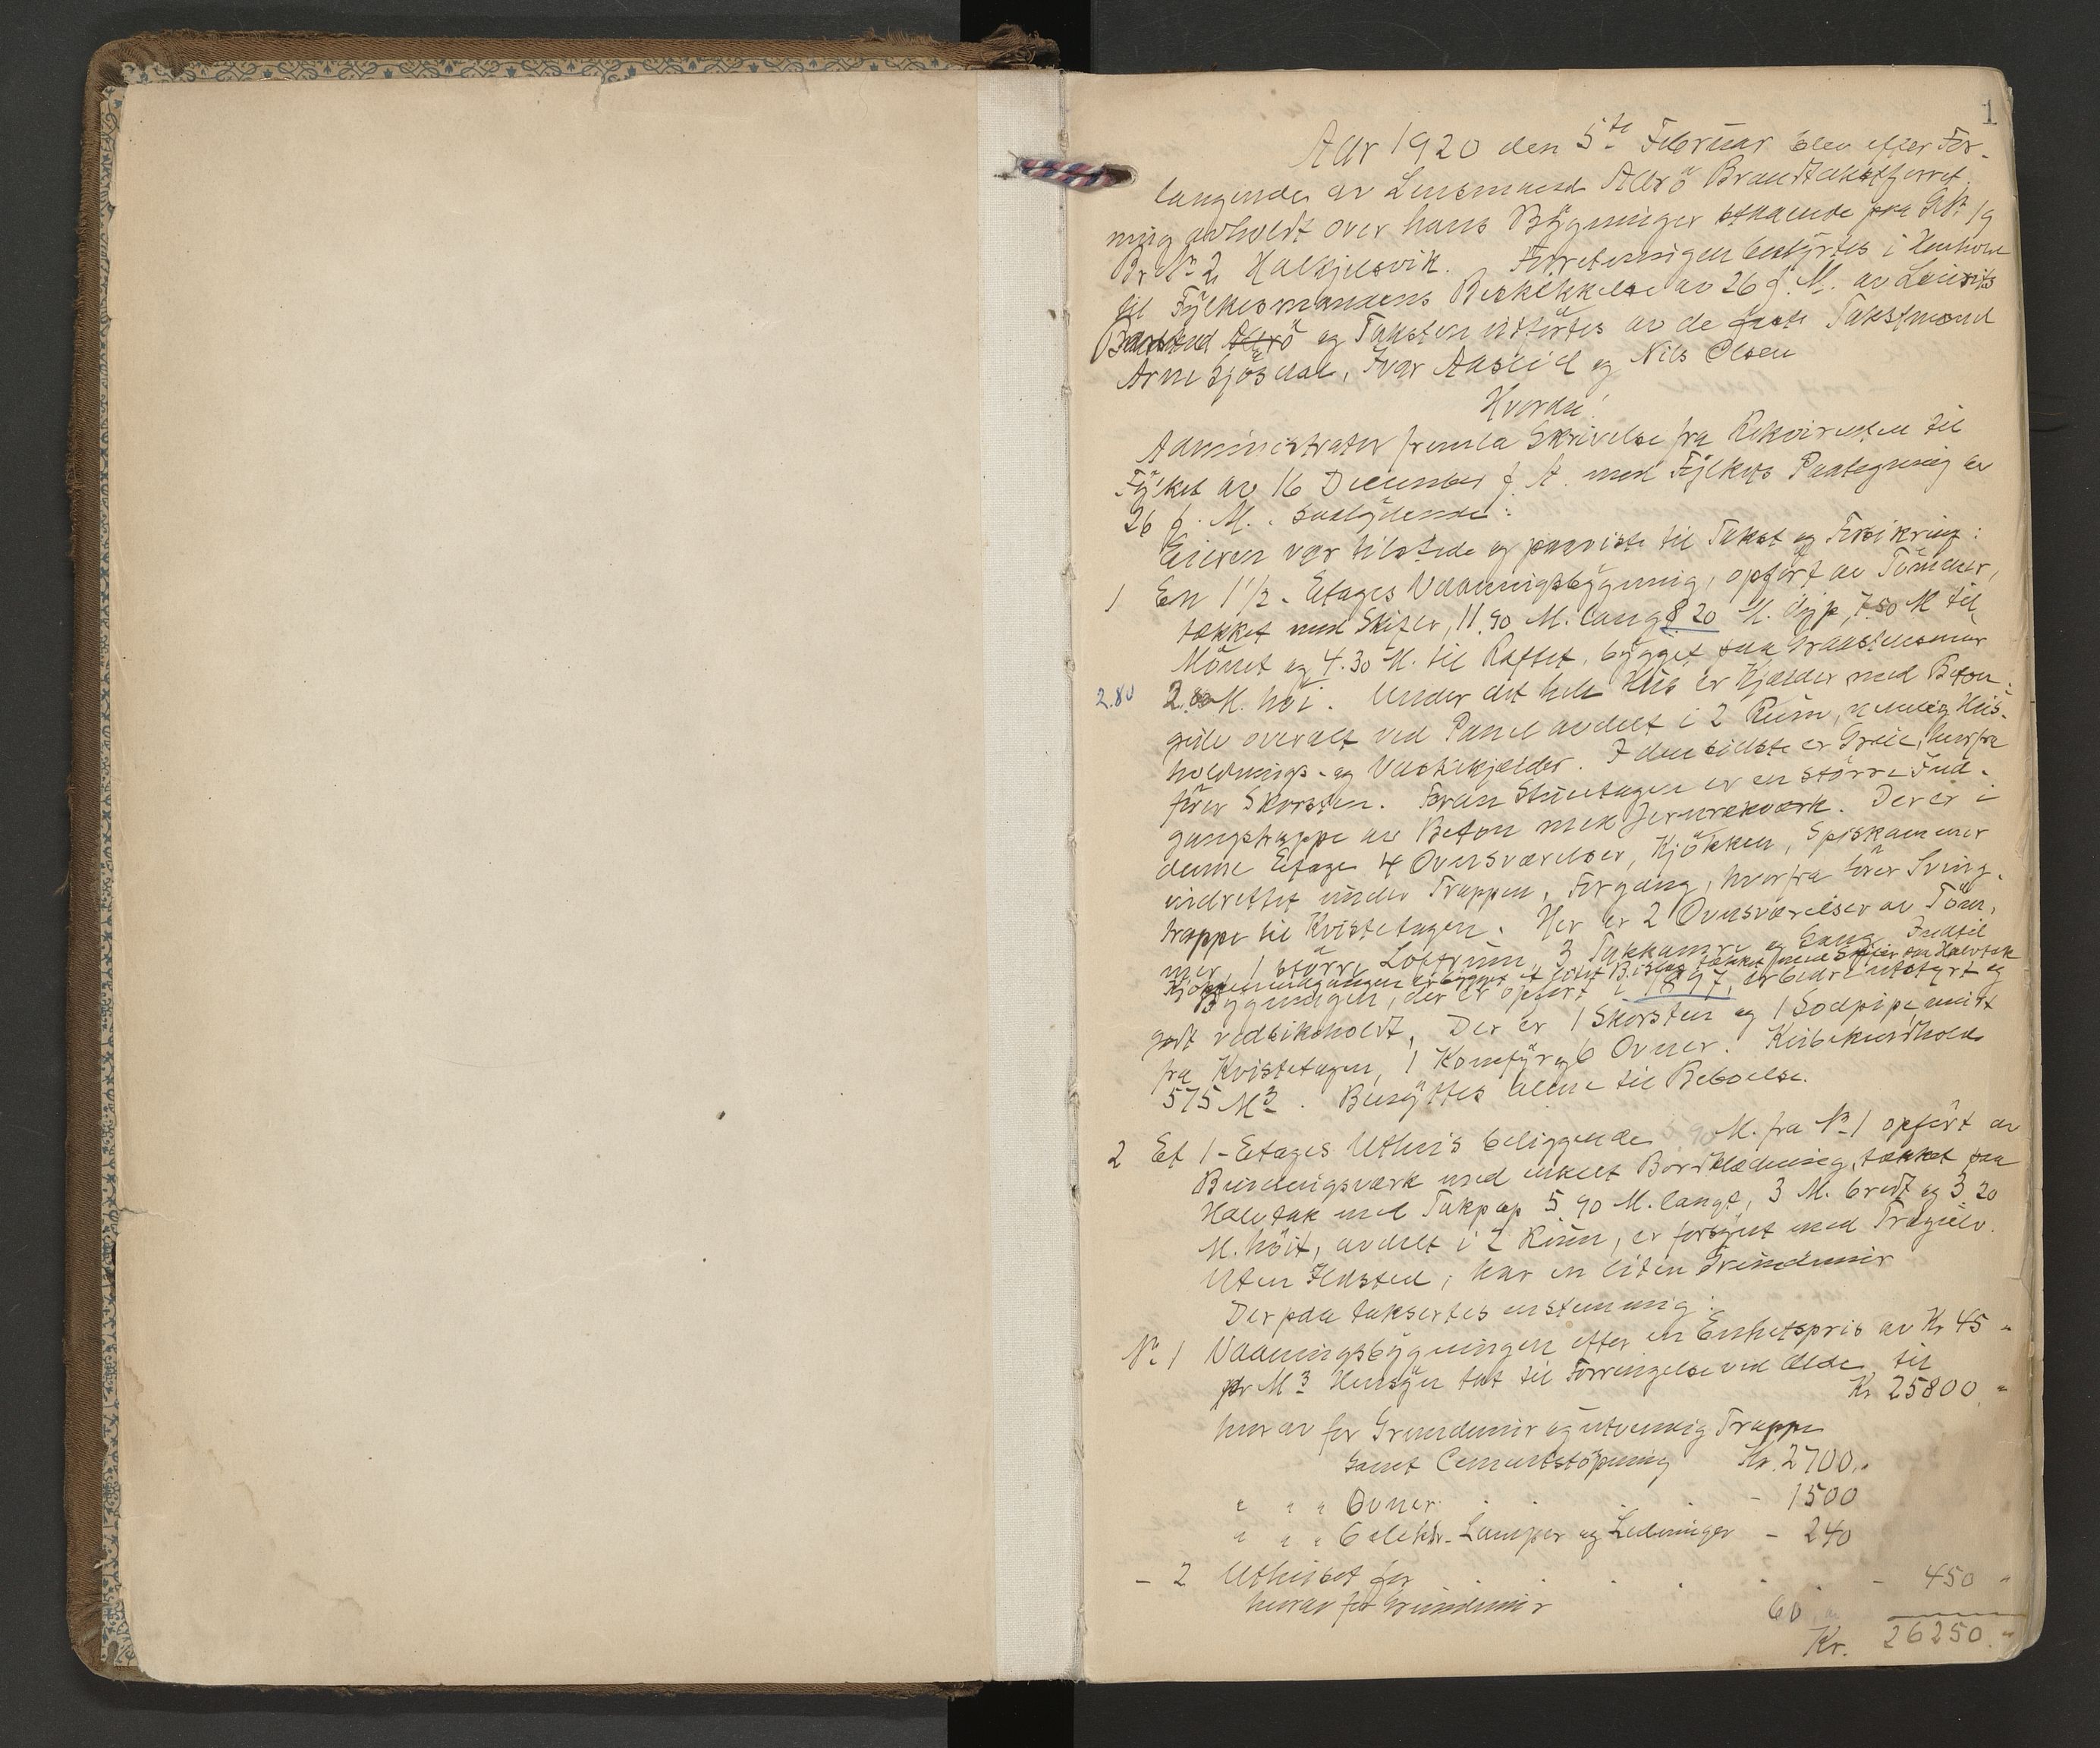 1
Aar 1920 den 5te Februar blev efter For-
langende av Lensmand Allrö Brandtakstforret-
ning avholdt over hans Bygninger staaende paa GNr 19
Br.Nr 2 Halkjelsvik. Forretningen bestyrtes i Henhold
til Fylkesmandens Beskikkelse av 26 f. M. av Lensmd
og Taksten utførtes av de faste Takstmænd
Arne Sjösdal, Ivar Aaslid og Nils Olsen
Hvorda!
Administrator fremla Skrivelse fra Rekvirenten til
Fylket av 16 December f. A. med Fylkets Paategning av
26 f. M. saalydende:
Eieren var tilstede og paaviste til Takst og Forsikring:
1 En 1 1/2 Etages Vaaningsbygning, opført av Tömmer,
tækket med Skifer, 11.90 M. lang 8.20 M. dyp, 7.50 M til
Mönet og 4.30 M. til Raftet, bygget paa Graastensmur
2.80 2.80 M. höi. Under det hele Hus er Kjælder med Beton-
gulv overalt ved Panel avdelt i 2 Rum, nemlig Hus-
holdnings- og Vaskekjælder. I den sidste er Grue, hvorfra
förer Skorsten. Foran Stueetagen er en större Ind-
gangstrappe av Beton med Jernrekværk. Der er i
denne Etage 4 Ovnsværelser, Kjökken, Spiskammer
indrettet under Trappen, Forgang, hvorfra förer Sving-
trappe til Kvistetagen. Her er 2 Ovnsværelser av Töm-
mer, 1 större Loftrum, 3 Takkamre og Gang. Indtil
Kjökkenindgangen er bygget et lidet Bislag tækket med Skifer paa Halvtak
Bygningen, der er opført i 1897, er bedre utstyrt og
godt vedlikeholdt. Der er 1 Skorsten og 1 Sodpipe mürt
fra Kvistetagen, 1 Komfyr og 6 Ovner. Kubikindhold
575 M3. Benyttes alene til Beboelse.
2 Et 1-Etages Uthus beliggende 90 M. fra Nr 1 opført av
Bindingsværk med enkelt Bordklædning, tækket paa
Halvtak med Takpap 5.90 M. langt, 3 M. bredt og 3.20
M. höit, avdelt i 2 Rum, er forsynt med Trægulv.
Uten Ildsted, har en liten Grundmur
Derpaa taksertes enstemmig:
Nr 1 Vaaningsbygningen efter en Enhetspris av Kr 45 -
pr M3 Hensyn tat til Forringelse ved Ælde til
Kr 25800. -
hvorav for Grundmur og utvendig Trappe
samt Cementstöpning Kr. 2700. -
" " " Ovner - 1500
" " " 6 elektr. Lamper og Ledninger - 240
- 2 Uthuset for - 450 -
hvorav for Grundmur 60
Kr. 26250. -